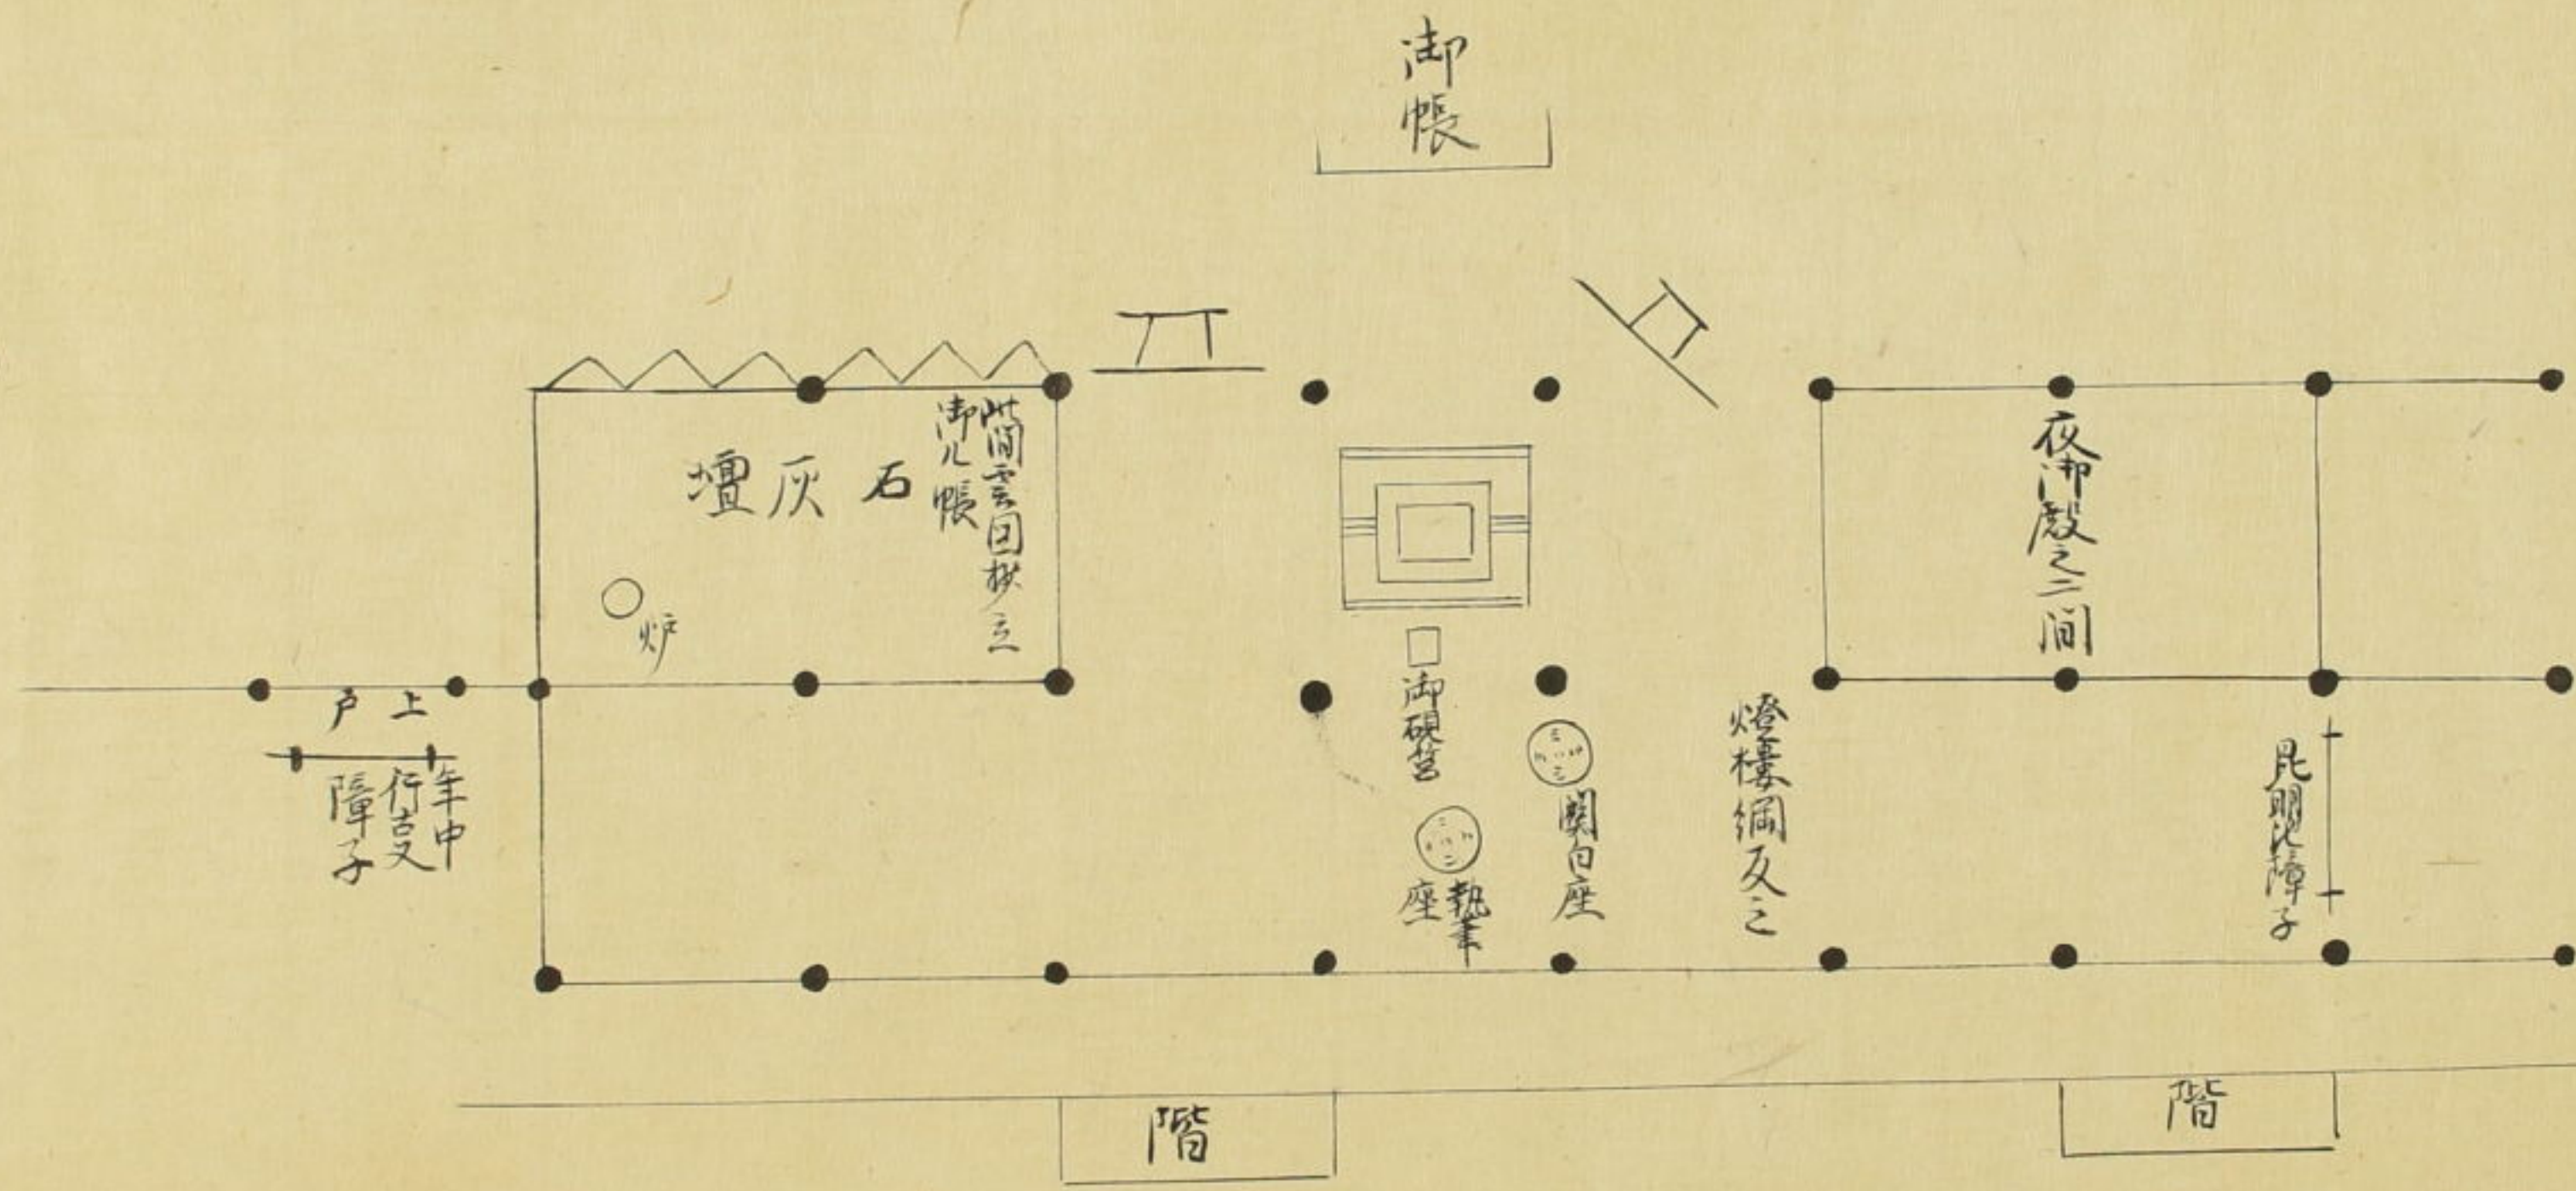 御帳
夜御殿之二間
昆明池障子
燈樓綱反之
関白座
御硯筥
執筆
座
御几帳
石灰壇
炉
上戸
年中
行事
障子
階
階